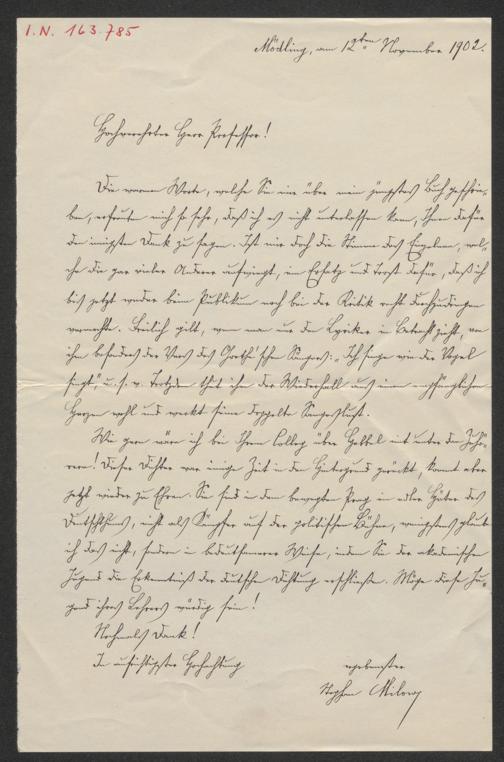 I.N. 163.785
Mödling, am 12ten November 1902.
Hochverehrter Herr Professor!
Die warmen Worte, welche Sie mir über mein jüngstes Buch geschrie-
ben, erfreuten mich so sehr, daß ich es nicht unterlassen kann, Ihnen dafür
den innigsten Dank zu sagen. Ist mir doch die Stimme des Einzelnen, wel-
che die gar vieler Anderer aufwiegt, ein Ersatz und Trost dafür, daß ich
bis jetzt weder beim Publikum noch bei der Kritik recht durchzudringen
vermochte. Freilich gilt, wenn man nur den Lyriker in Betracht zieht, von
ihm besonders der Vers des Goethe'schen Sängers: „Ich singe wie der Vogel
singt", u. s. w. Trotzdem thut ihm der Widerhall aus einem empfänglichen
Herzen wohl und weckt seine doppelte Sangeslust.
Wie gern wäre ich bei Ihrem Colleg über Hebbel mit unter den Zuhö-
rern! Dieser Dichter war einige Zeit in den Hintergrund gerückt, kommt aber
jetzt wieder zu Ehren. Sie sind in dem bewegten Prag ein edler Hüter des
Deutschthums, nicht als Kämpfer auf der politischen Bühne, wenigstens glaube
ich das nicht, sondern in bedeutsamerer Weise, indem Sie der akademischen
Jugend die Erkenntniß der deutschen Dichtung erschließen. Möge diese Ju-
gend ihres Lehrers würdig sein!
Nochmals Dank!
In aufrichtigster Hochachtung
ergebenster
Stephan Milow